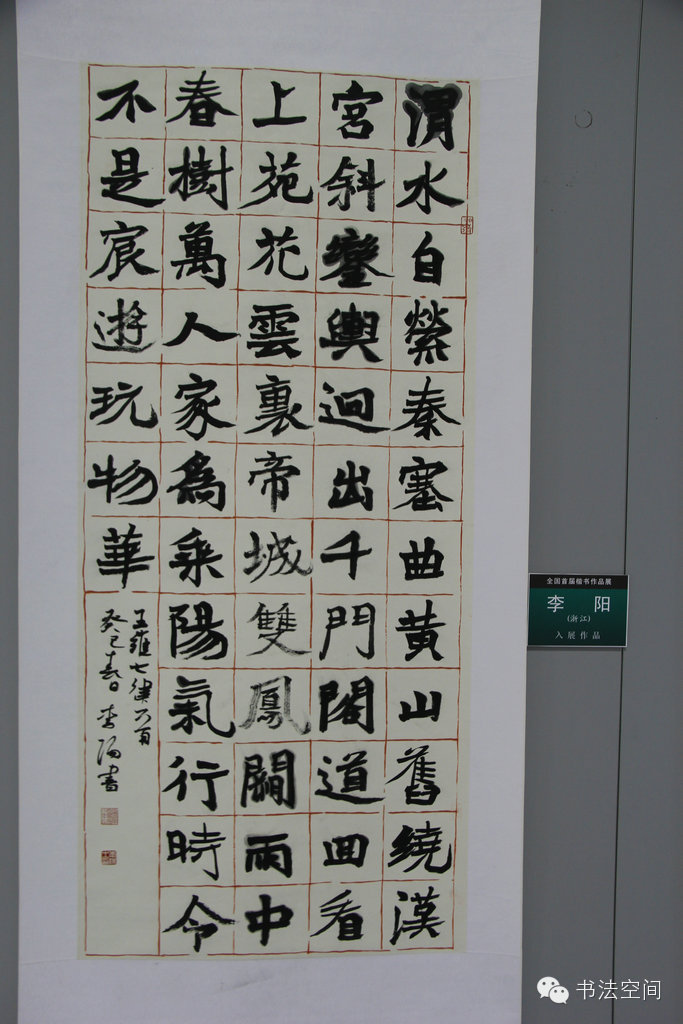 渭水自縈秦塞曲黄山舊繞漢
宫斜鑾輿迥出千門閣道囬看
上苑花雲裏帝城雙鳳闕雨中
春樹萬人家為乘陽氣行時令
不是宸遊玩物華
王維七律一首
癸巳春日李陽書
全国首届楷书作品展
李 阳
(浙江)
入展作品
书法空间